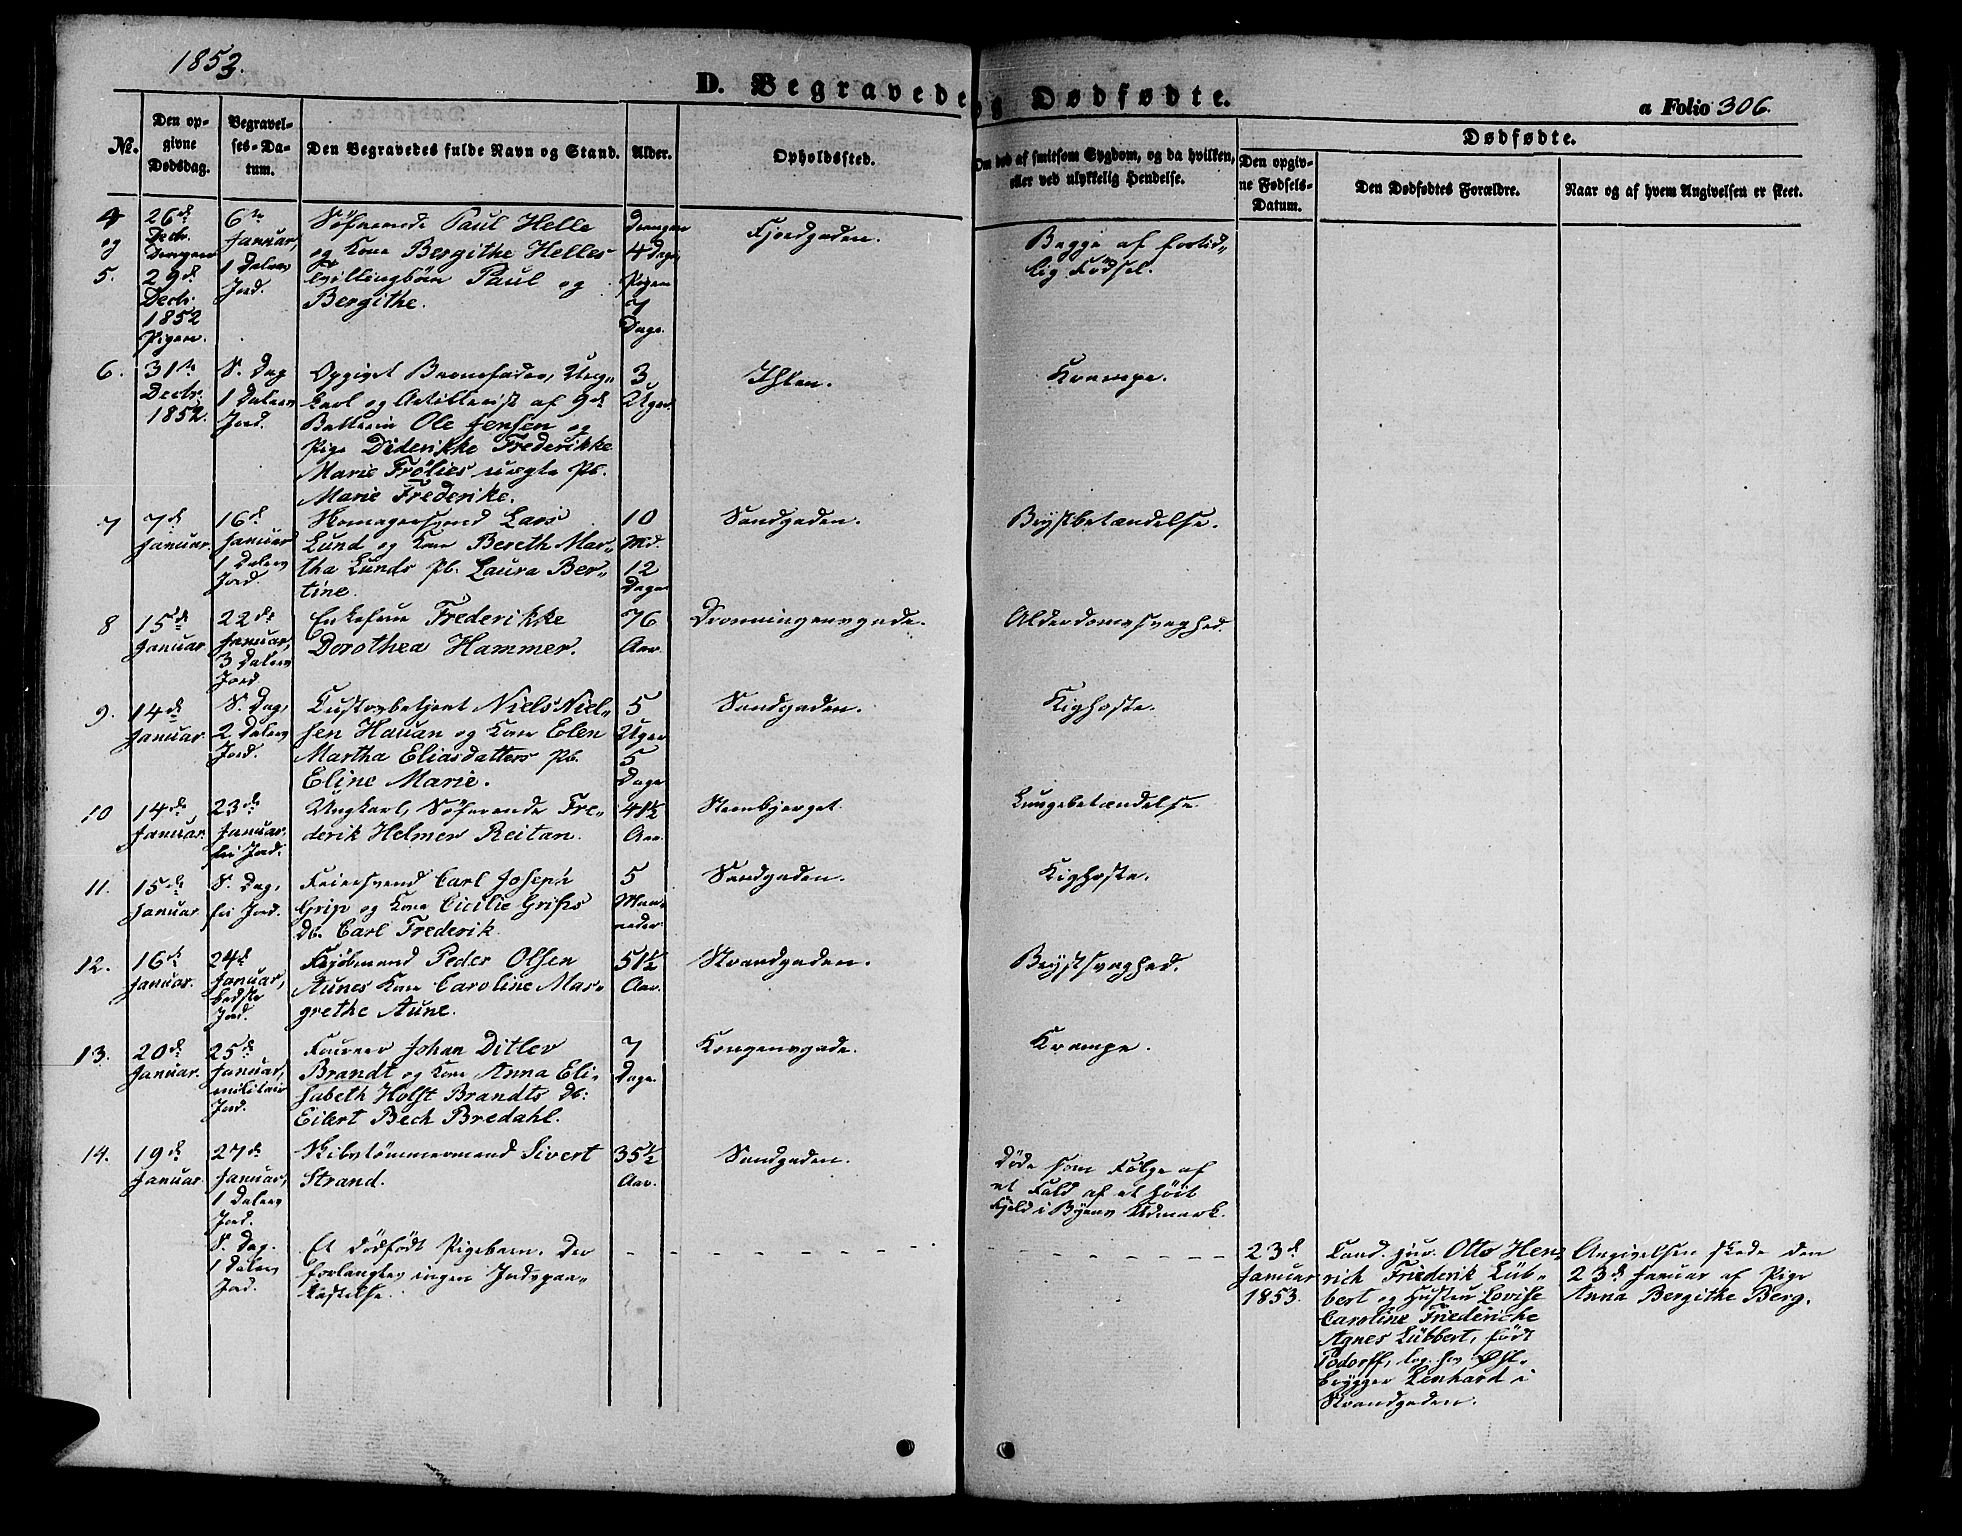 1853.
D. Begravede og Dødfødte.
a Folio 306.
No.
Den op-
givne
Dødsdag.
Begravel-
ses-Da-
tum.
Den Begravedes fulde Navn og Stand.
Alder.
Opholdssted.
Om død af smitsom Sygdom, og da hvilken,
eller ved ulykkelig Hendelse.
Dødfødte.
Den opgiv-
ne Fødsels-
Datum.
Den Dødfødtes Forældre.
Naar og af hvem Angivelsen er skeet.
4
og
5.
26de
Decbr.
Drengen
29de
Decbr.
1852
Pigen.
6te
Januar,
1 Dalers
Jord.
Søfarende Paul Helle
og Kone Bergithe Helles
Tvillingbörn Paul og
Bergithe.
Drengen
4 Dage,
Pigen
7
Dage.
Fjordgaden.
Begge af fortid-
lig Födsel.
6.
31te
Decbr.
1852.
S. Dag
1 Dalers
Jord.
Opgivet Barnefader, Ung-
karl og Artillerist af 9de
Batterie Ole Jensen og
Pige Diderikke Frederikke
Marie Frölies uægte Pb.
Marie Frederike.
3
Uger.
Ihlen.
Krampe.
7
7de
Januar.
16de
Januar
1 Dalers
Jord.
Lars
Lund og Kone Bereth Mar-
tha Lunds Pb. Laura Ber-
tine.
10
Md.
12
Dage
Sandgaden.
Brystbetændelse.
8
15de
Januar.
22de
Januar,
3 Dalers
Jord.
Enkefrue Frederikke
Dorothea Hammer.
76
Aar.
Dronningensgade.
Alderdomssvaghed.
9.
14de
Januar.
S. Dag,
2 Dalers
Jord.
Niels Niel-
sen Hauan og Kone Elen
Martha Eliasdatters Pb.
Eline Marie.
5
Uger
5
Dage
Sandgaden.
Kighoste.
10
14de
Januar.
23de
Januar.
fri Jord.
Ungkarl, Söfarende Fre-
derik Helmer Reitan.
41½
Aar.
Steenbjerget.
Lungebetændelse.
11.
15de
Januar.
S. Dag,
fri Jord.
Feiersvend Carl Joseph
Grip og Kone Cicilie Grips
Db. Carl Frederik.
5
Maa-
neder.
Sandgaden.
Kighoste.
12.
16de
Januar.
24de
Januar,
bedste
Jord.
Kjöbmand Peder Olsen
Aunes Kone Caroline Mar-
grethe Aune.
51½
Aar.
Strandgaden.
Brystsvaghed.
13.
20de
Januar.
25de
Januar,
militair
Jord.
Fourer Johan Ditlev
Brandt og Kone Anna Eli-
sabeth Holst Brandts Db:
Eilert Bech Bredahl.
7
Dage.
Kongensgade.
Krampe.
14.
19de
Januar.
27de
Januar,
1 Dalers
Jord.
Skibstömmermand Sivert
Strand.
35½
Aar.
Sandgaden.
Döde som Fölge af
et Fald af et höit
Fjeld i Byens Udmark.
S. Dag.
1 Dalers
Jord.
Et dödfödt Pigebarn. Der
forlangtes ingen Jordspaa-
kastelse.
23de
Januar
1853.
Cand. jur. Otto Hen-
rich Friederik Lüb-
bert og Hustru Lovise
Caroline Friederiche
Agnes Lübbert, födt
Todorff, log. hos Øl-
brygger Lenhard i
Strandgaden.
Angivelsen skede den
23de Januar af Pige
Anna Bergithe Berg.